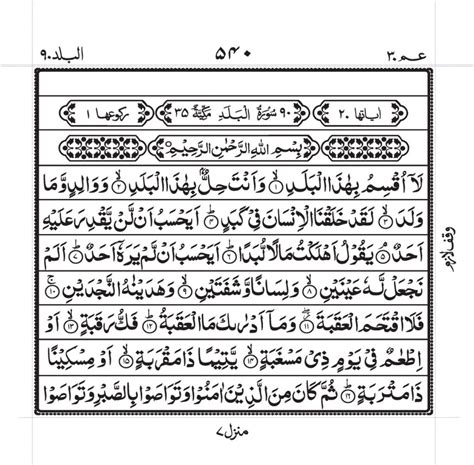 عم ۳۰ ۵۴۰ البلد ۹۰
اٰیاتها ۲۰ ۹۰ سُوْرَةُ الْبَلَدِ مَكِّيَّةٌ ۳۵ ركوعها ۱
بِسْمِ اللّٰهِ الرَّحْمٰنِ الرَّحِیْمِ
لَاۤ اُقْسِمُ بِهٰذَا الْبَلَدِ ۙ﴿۱﴾ وَاَنْتَ حِلٌّۢ بِهٰذَا الْبَلَدِ ۙ﴿۲﴾ وَوَالِدٍ وَّمَا
وَلَدَ ۙ﴿۳﴾ لَقَدْ خَلَقْنَا الْاِنْسَانَ فِیْ كَبَدٍ ؕ﴿۴﴾ اَیَحْسَبُ اَنْ لَّنْ یَّقْدِرَ عَلَیْهِ
اَحَدٌ ۘ﴿۵﴾ یَقُوْلُ اَهْلَكْتُ مَالًا لُّبَدًا ؕ﴿۶﴾ اَیَحْسَبُ اَنْ لَّمْ یَرَهٗۤ اَحَدٌ ؕ﴿۷﴾ اَلَمْ
وقف لازم
نَجْعَلْ لَّهٗ عَیْنَیْنِ ۙ﴿۸﴾ وَلِسَانًا وَّشَفَتَیْنِ ۙ﴿۹﴾ وَهَدَیْنٰهُ النَّجْدَیْنِ ۚ﴿۱۰﴾
فَلَا اقْتَحَمَ الْعَقَبَةَ ۖ﴿۱۱﴾ وَمَاۤ اَدْرٰىكَ مَا الْعَقَبَةُ ؕ﴿۱۲﴾ فَكُّ رَقَبَةٍ ۙ﴿۱۳﴾ اَوْ
اِطْعٰمٌ فِیْ یَوْمٍ ذِیْ مَسْغَبَةٍ ۙ﴿۱۴﴾ یَّتِیْمًا ذَا مَقْرَبَةٍ ۙ﴿۱۵﴾ اَوْ مِسْكِیْنًا
ذَا مَتْرَبَةٍ ؕ﴿۱۶﴾ ثُمَّ كَانَ مِنَ الَّذِیْنَ اٰمَنُوْا وَتَوَاصَوْا بِالصَّبْرِ وَتَوَاصَوْا
منزل ۷